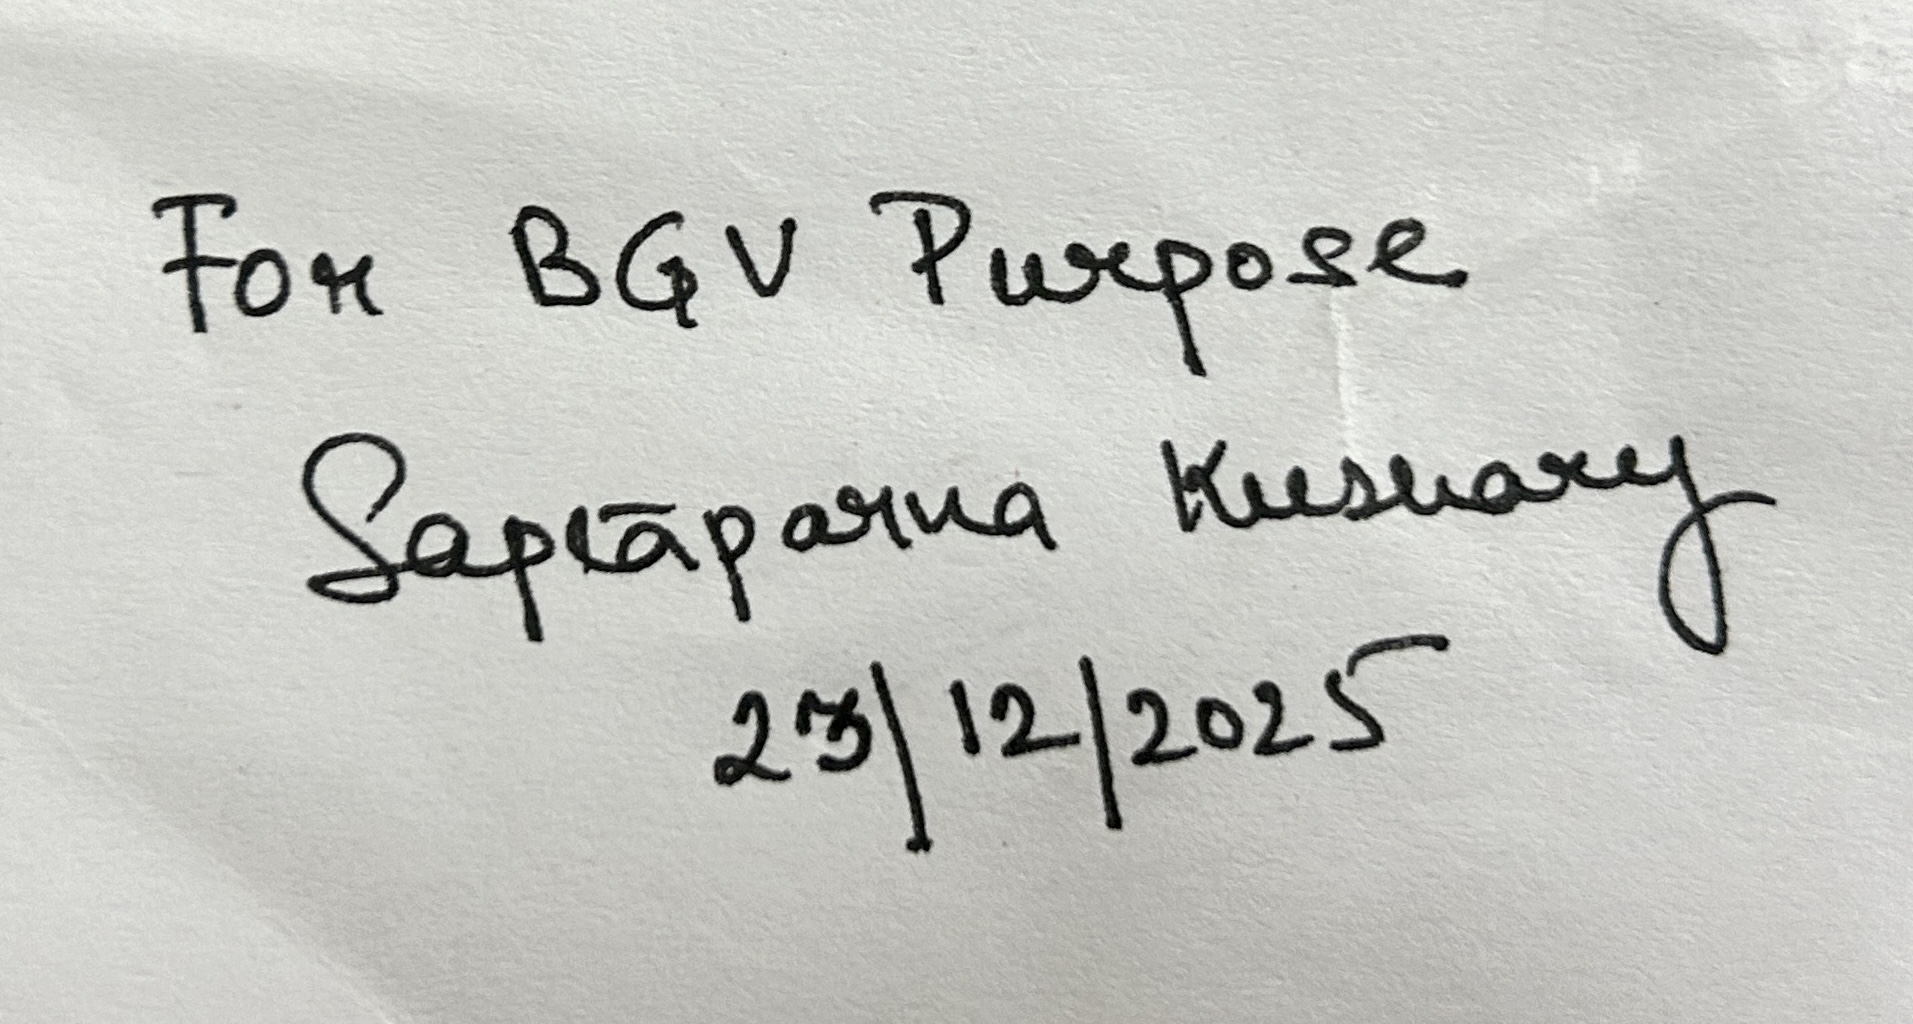 For BGV Purpose
Saptaparna Kushary
23/12/2025